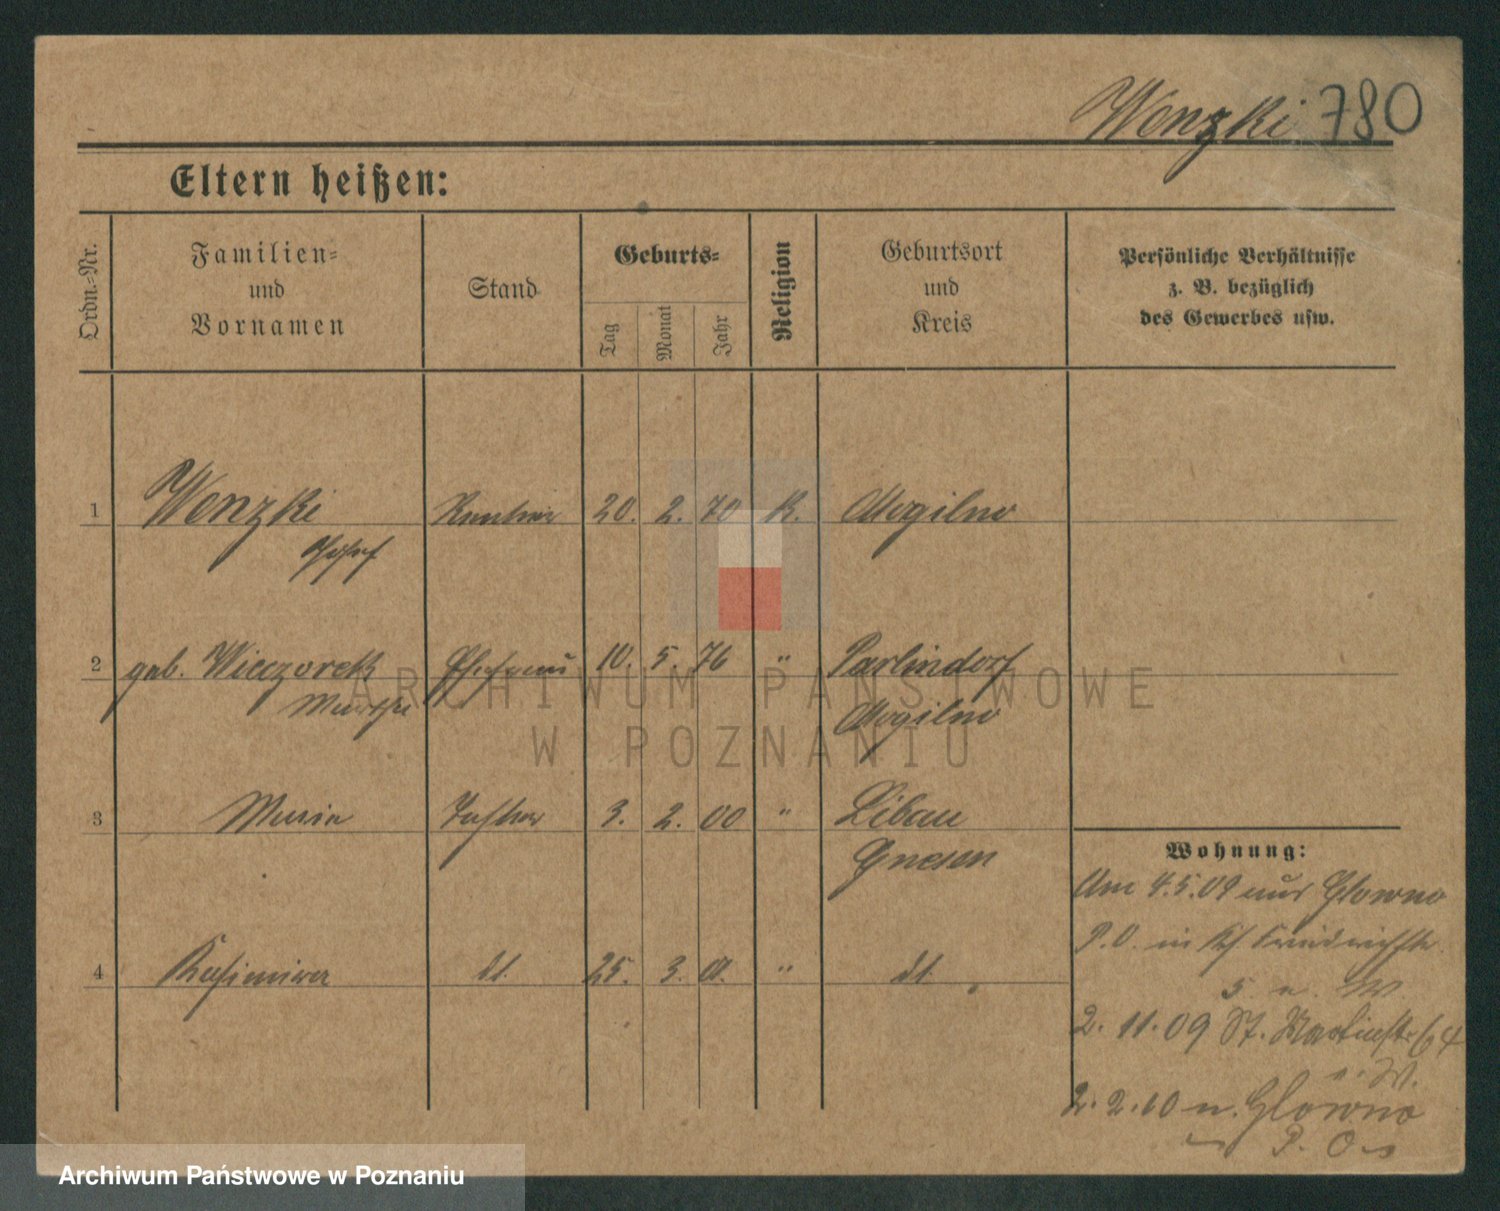 Wenzki 780
Eltern heißen:
Ordn.=Nr.
Familien=
und
Vornamen
Stand
Geburts=
Tag
Monat
Jahr
Religion
Geburtsort
und
Kreis
Persönliche Verhältnisse
z. B. bezüglich
des Gewerbes usw.
1 Wenzki Rentier 20. 2. 70 K. Mogilno
Josef
2 geb. Wieczorek Ehefrau 10. 5. 76 " Parlindorf
Mogilno
3 Maria Tochter 3. 2. 00 " Libau
Gnesen
4 Kasimira dt. 25. 3. 01. " dt.
Wohnung:
Am 4.5.09 aus Glowno
P.O. in
5 n. W.
2. 11. 09 St. Martinstr 64
n. W.
2. 2. 10 n. Glowno
P. O
ARCHIWUM PAŃSTWOWE
W POZNANIU
Archiwum Państwowe w Poznaniu